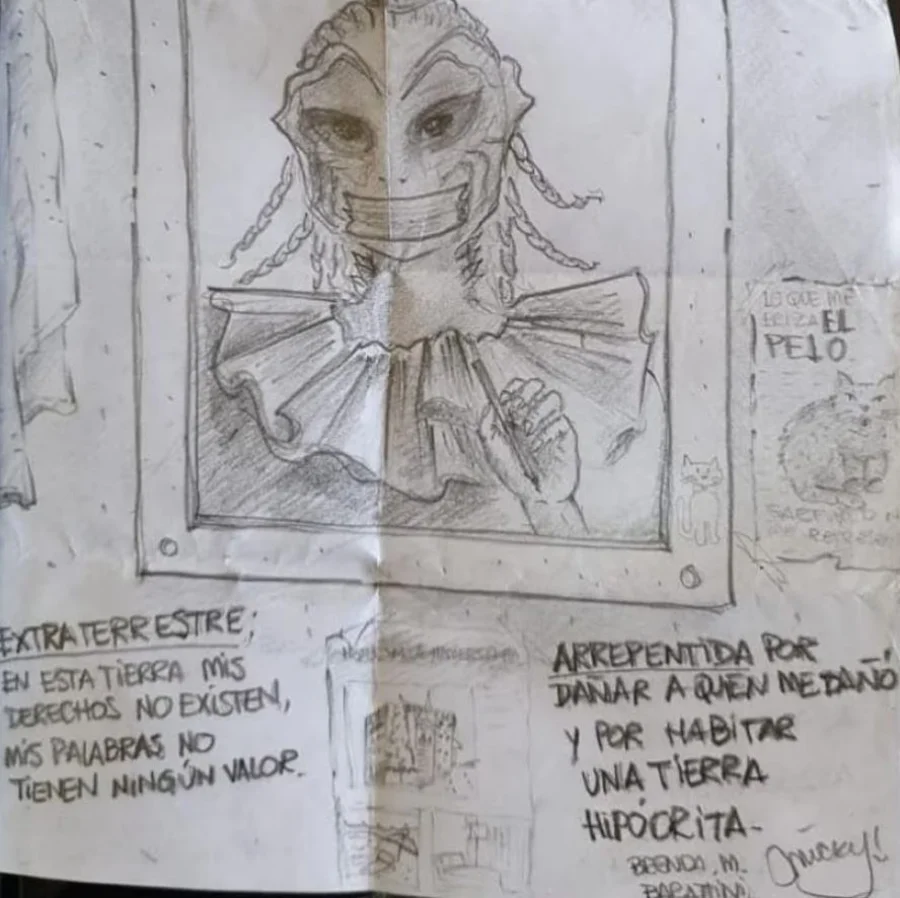 LO QUE ME
ERIZA EL
PELO
EXTRATERRESTRE;
EN ESTA TIERRA MIS
DERECHOS NO EXISTEN,
MIS PALABRAS NO
TIENEN NINGÚN VALOR.
ARREPENTIDA POR
DAÑAR A QUIEN ME DAÑÓ
Y POR HABITAR
UNA TIERRA
HIPÓCRITA-
BRENDA, M.
BARATTINI